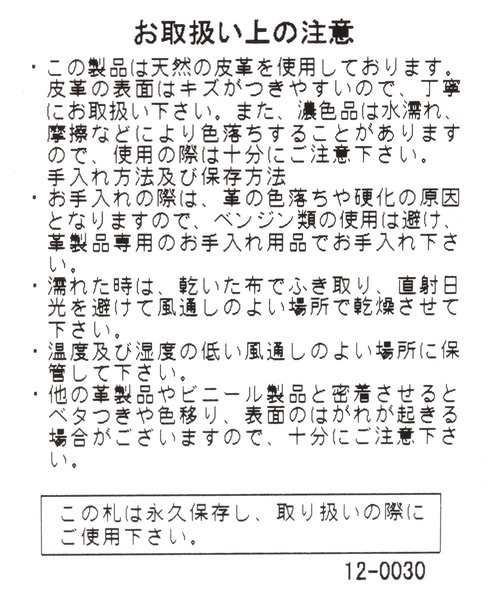 お取扱い上の注意
・この製品は天然の皮革を使用しております。
皮革の表面はキズがつきやすいので、丁寧
にお取扱い下さい。また、濃色品は水濡れ、
摩擦などにより色落ちすることがあります
ので、使用の際は十分にご注意下さい。
手入れ方法及び保存方法
・お手入れの際は、革の色落ちや硬化の原因
となりますので、ベンジン類の使用は避け、
革製品専用のお手入れ用品でお手入れ下さ
い。
・濡れた時は、乾いた布でふき取り、直射日
光を避けて風通しのよい場所で乾燥させて
下さい。
・温度及び湿度の低い風通しのよい場所に保
管して下さい。
・他の革製品やビニール製品と密着させると
ベタつきや色移り、表面のはがれが起きる
場合がございますので、十分にご注意下さ
い。
この札は永久保存し、取り扱いの際に
ご使用下さい。
12-0030